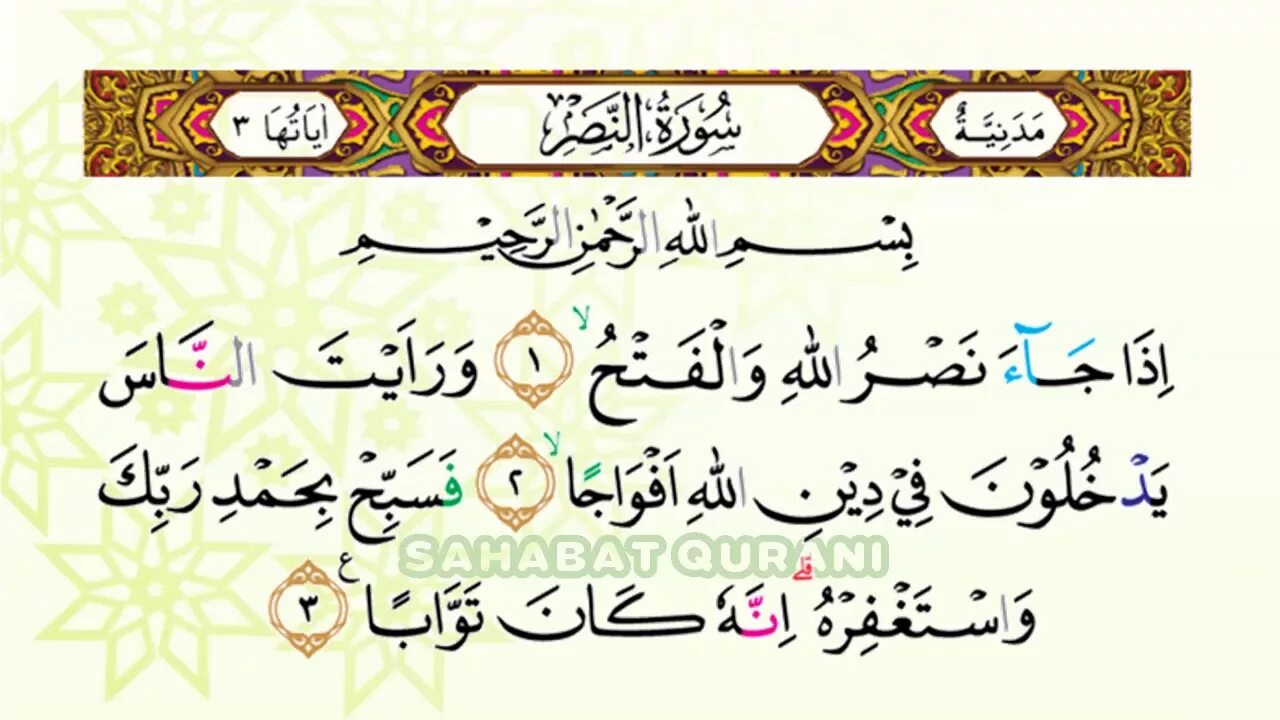 مَدَنِيَّةٌ سُوْرَةُ النَّصْرِ اٰيَاتُهَا ٣
بِسْمِ اللهِ الرَّحْمٰنِ الرَّحِيْمِ
اِذَا جَاۤءَ نَصْرُ اللهِ وَالْفَتْحُ ۙ ١ وَرَاَيْتَ النَّاسَ
يَدْخُلُوْنَ فِيْ دِيْنِ اللهِ اَفْوَاجًا ۙ ٢ فَسَبِّحْ بِحَمْدِ رَبِّكَ
SAHABAT QURANI
وَاسْتَغْفِرْهُ ۗ اِنَّهٗ كَانَ تَوَّابًا ࣖ ٣